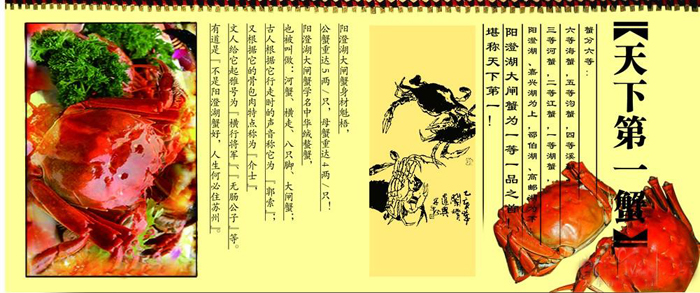 【天下第一蟹】
蟹分六等：
六等海蟹，五等沟蟹，四等溪
三等河蟹，二等江蟹，一等湖蟹，
阳澄湖、嘉兴湖为上，邵伯湖、高邮
阳澄湖大闸蟹为一等一品之
堪称天下第一！
阳澄湖大闸蟹身材魁梧，
公蟹重达5两/只，母蟹重达4两/只！
阳澄湖大闸蟹学名中华绒螯蟹，
也被叫做：河蟹、横走、八只脚、大闸蟹；
古人根据它行走时的声音称它为『郭索』，
又根据它的骨包肉特点称为『介士』，
文人给它起雅号为『横行将军』、『无肠公子』等。
有道是『不是阳澄湖蟹好，人生何必住苏州』。